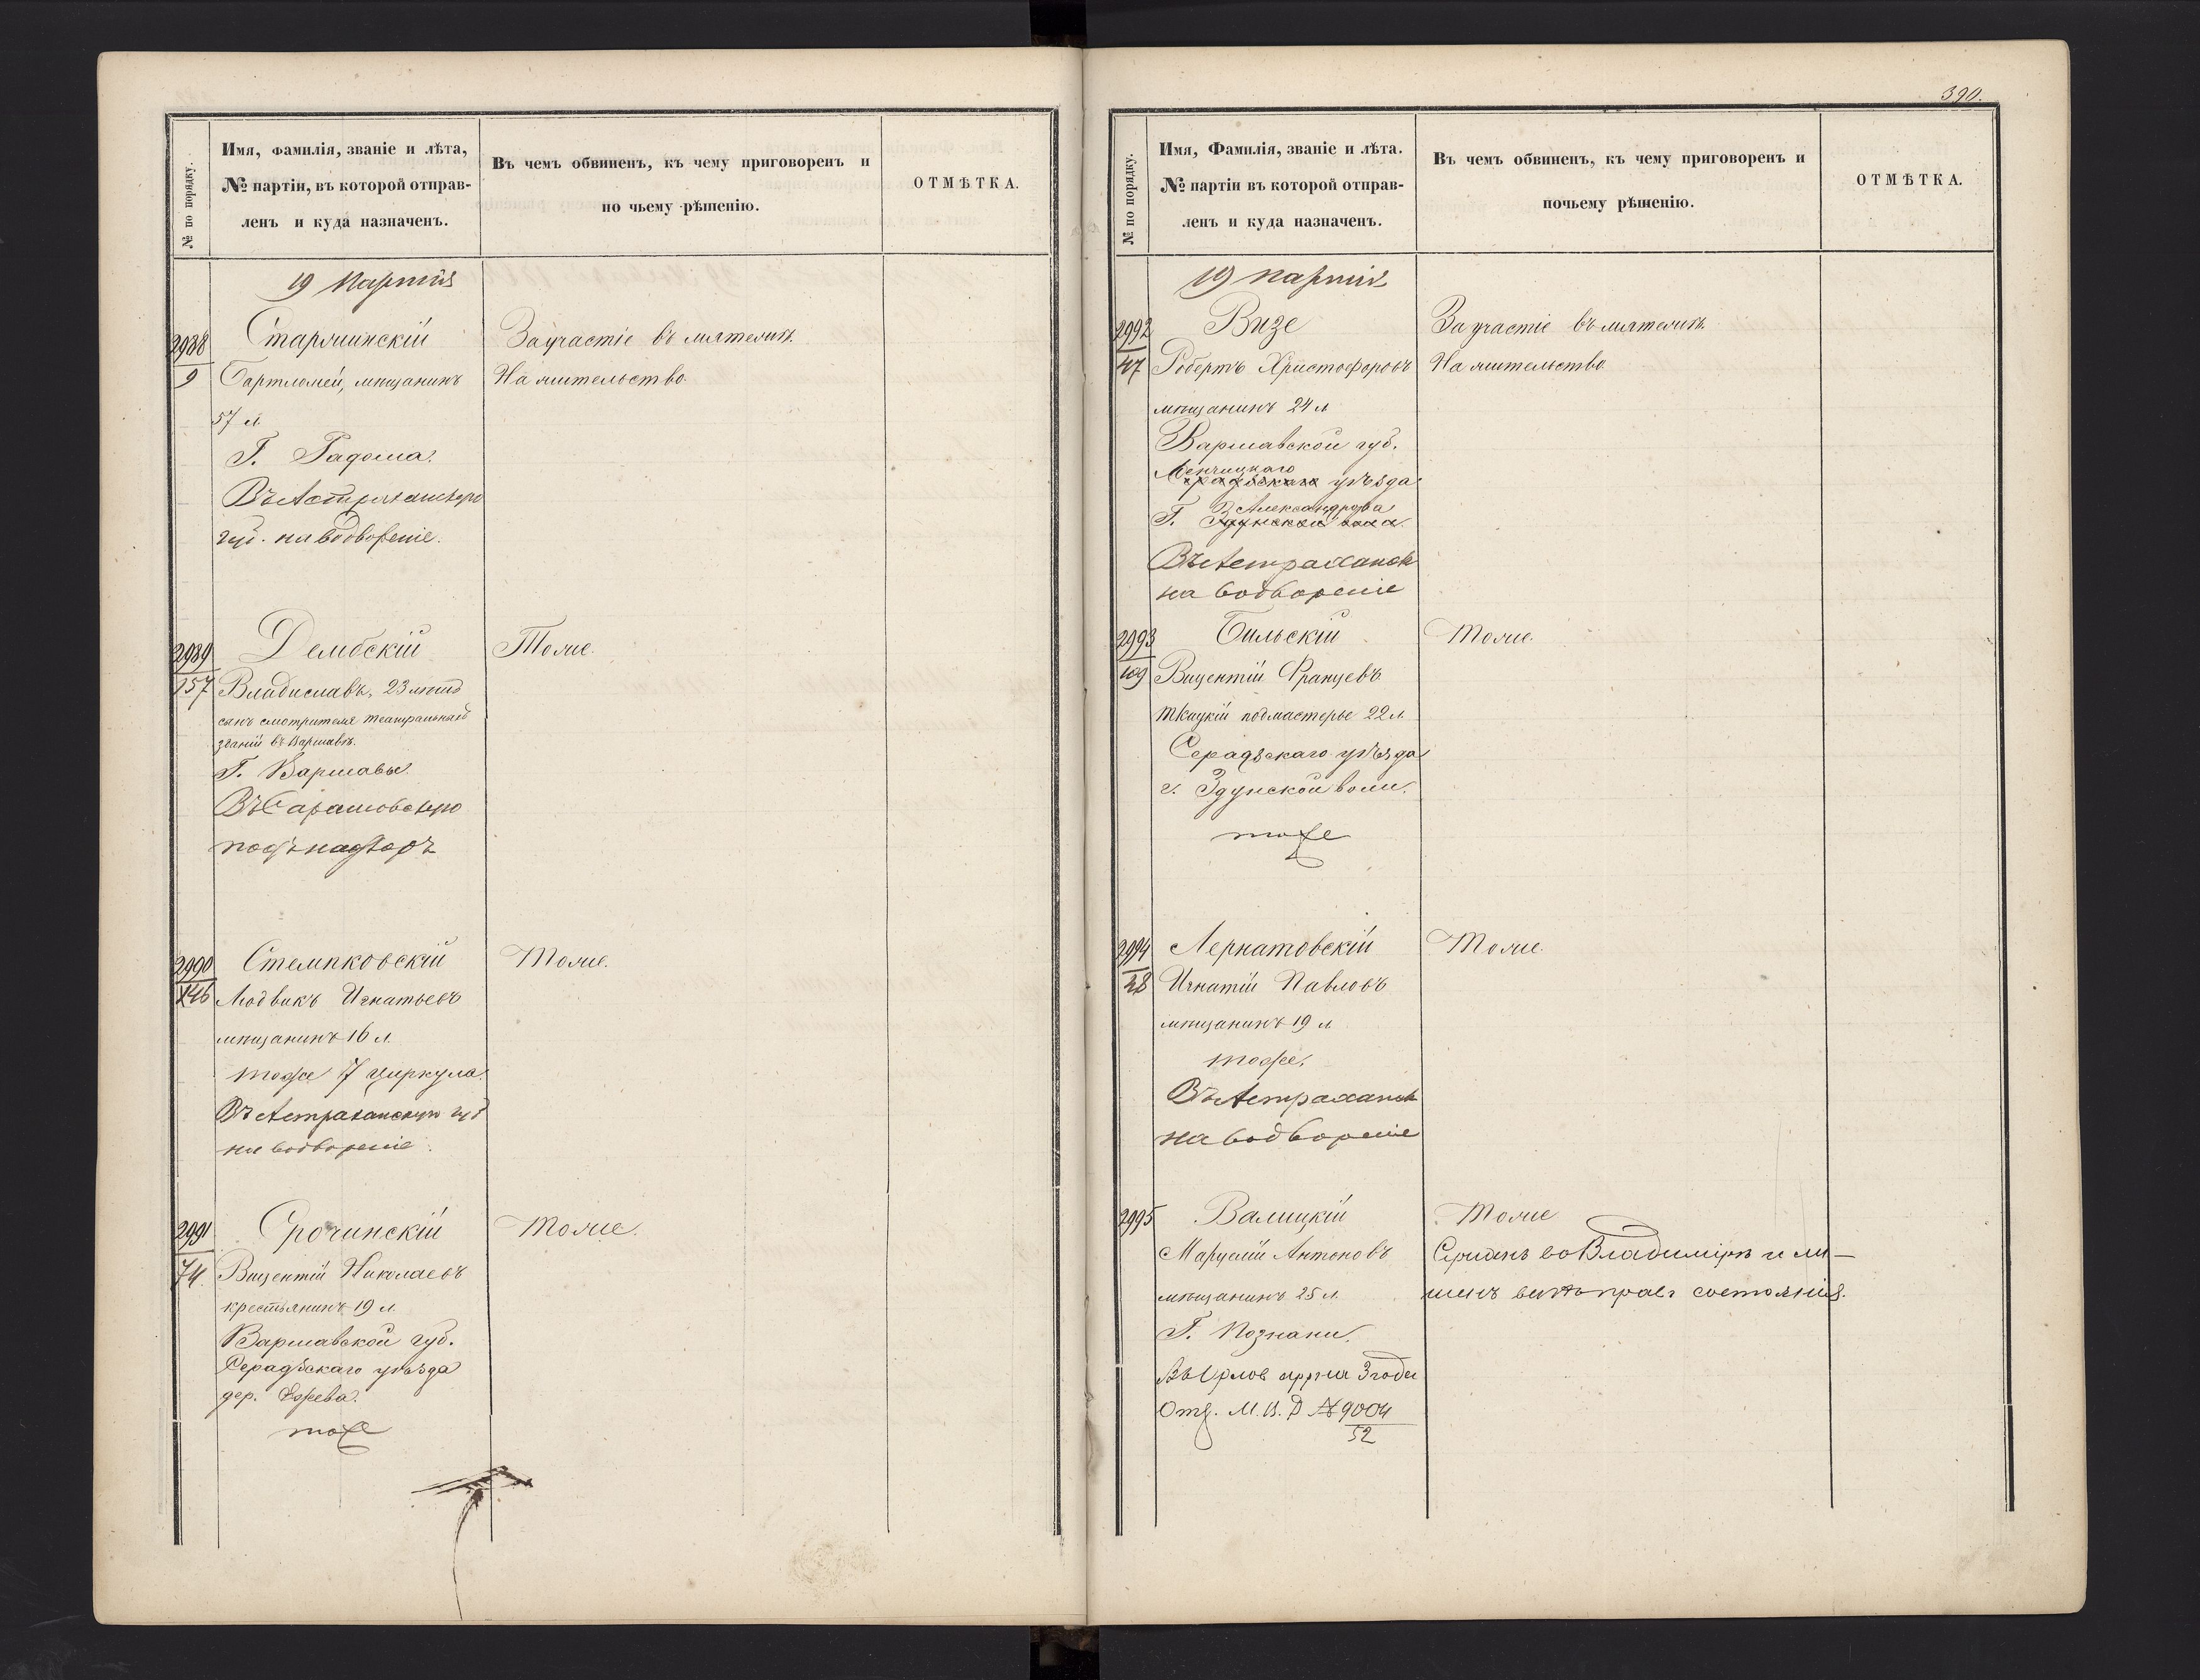 № по порядку.
Имя, Фамилія, званіе и лѣта,
№ партіи, въ которой отправ-
ленъ и куда назначенъ.
Въ чемъ обвиненъ, къ чему приговоренъ и
по чьему рѣшенію.
ОТМѢТКА.
19 партія
2988
9
Старжинскій
Бартломей, мѣщанинъ
57 л.
Г. Радома.
Въ Астраханскую
губ. на водвореніе.
За участіе въ мятежѣ.
На жительство.
2989
157
Дембскій
Владиславъ, 23 лѣтъ
сынъ смотрителя театральныхъ
зданій въ Варшавѣ.
Г. Варшавы.
Въ Саратовскую
подъ надзоръ
Тоже.
2990
146
Стемпковскій
Людвикъ Игнатьевъ
мѣщанинъ 16 л.
тоже 7 циркула.
Въ Астраханскую губ
на водвореніе.
Тоже.
2991
74.
Срочинскій
Вицентій Николаевъ
крестьянинъ 19 л.
Варшавской губ.
Серадзскаго уѣзда
дер. Ежева.
тоже
Тоже.
390.
№ по порядку.
Имя, Фамилія, званіе и лѣта.
№ партіи въ которой отправ-
ленъ и куда назначенъ.
Въ чемъ обвиненъ, къ чему приговоренъ и
почьему рѣшенію.
ОТМѢТКА.
19 партія
2992
47
Визе
Робертъ Христофоровъ
мѣщанинъ 24 л
Варшавской губ.
Ленчицкаго
Серадзскаго уѣзда
Александрова
Г. Здунской воли.
Въ Астраханск
на водвореніе
За участіе въ мятежѣ.
На жительство
2993
109
Бильскій
Вицентій Францевъ
ткацкій подмастерье 22 л.
Серадзскаго уѣзда
г. Здунской воли.
тоже
Тоже.
2994
28
Лернатовскій
Игнатій Павловъ
мѣщанинъ 19 л
тоже.
Въ Астраханск
на водвореніе
Тоже.
2995
Валицкій
Антоновъ
мѣщанинъ 25 л.
Г. Познани.
на 3 года
М. В. Д №9004
52
Тоже
Сужденъ во Владимірѣ и ли-
шенъ всѣхъ правъ состоянія.